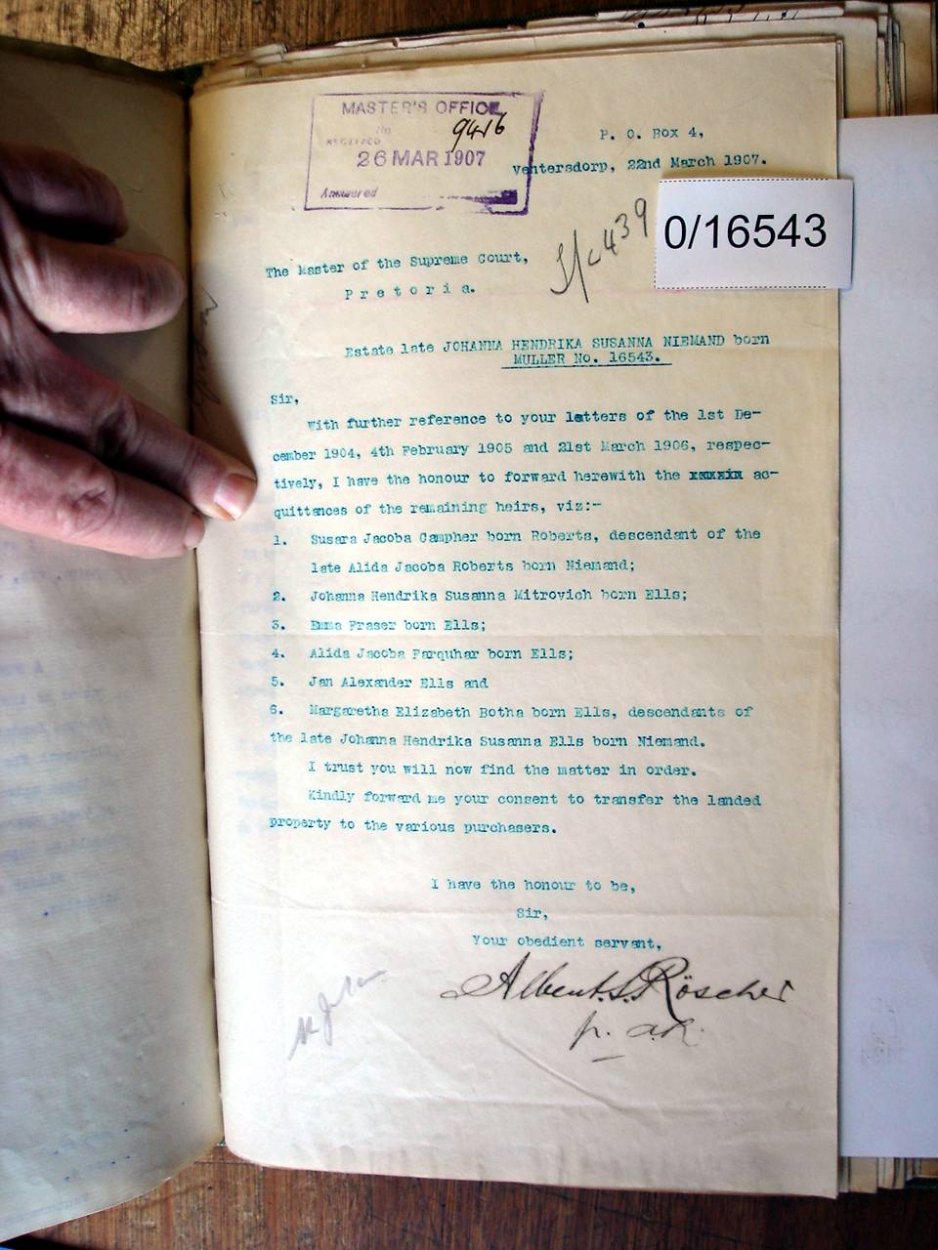 MASTER'S OFFICE
No 9416
RECEIVED
26 MAR 1907
Answered
P. O. Box 4,
Ventersdorp, 22nd March 1907.
0/16543
The Master of the Supreme Court,
Pretoria.
Estate late JOHANNA HENDRIKA SUSANNA NIEMAND born
MULLER No. 16543.
Sir,
With further reference to your letters of the 1st De-
cember 1904, 4th February 1905 and 21st March 1906, respec-
tively, I have the honour to forward herewith the ac-
quittances of the remaining heirs, viz:-
1. Susara Jacoba Campher born Roberts, descendant of the
late Alida Jacoba Roberts born Niemand;
2. Johanna Hendrika Susanna Mitrovich born Ells;
3. Emma Fraser born Ells;
4. Alida Jacoba Farquhar born Ells;
5. Jan Alexander Ells and
6. Margaretha Elizabeth Botha born Ells, descendants of
the late Johanna Hendrika Susanna Ells born Niemand.
I trust you will now find the matter in order.
Kindly forward me your consent to transfer the landed
property to the various purchasers.
I have the honour to be,
Sir,
Your obedient servant,
Albert.S.Röscher